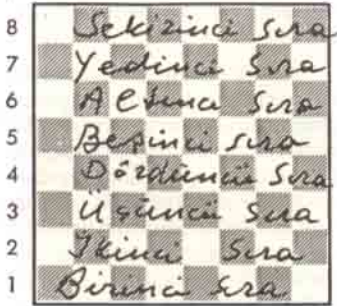 8 Sekizinci sıra
7 Yedinci sıra
6 Altıncı sıra
5 Beşinci sıra
4 Dördüncü sıra
3 Üçüncü sıra
2 İkinci sıra
1 Birinci sıra